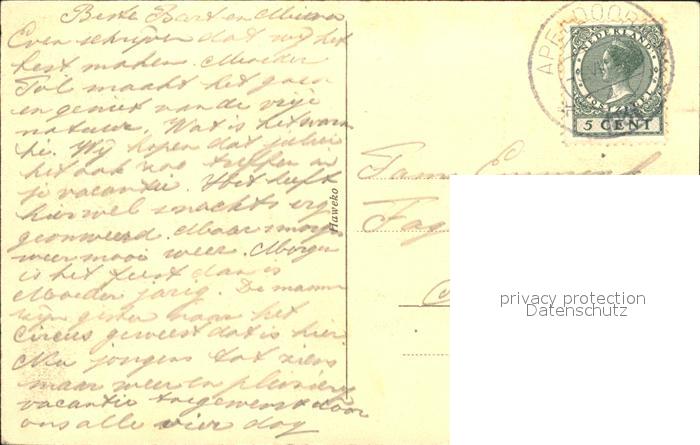 Beste Bart en Miena
Even schrijven dat wij het
best maken. Moeder
Tol maakt het goed
en geniet van de vrije
natuur. Wat is het warm
hè. Wij hopen dat jullie
het ook zoo treffen in
je vacantie. Het heeft
hier wel snachts erg
geonweerd. Maar smorgs
weer mooi weer. Morgen
is het feest dan is
Moeder jarig. De mannen
zijn gister naar het
Circus geweest dat is hier
Nu jongens tot ziens
maar weer en plezierig
vacantie toegewenst door
ons alle vier dag
Haweko
APELDOORN
NEDERLAND
5 CENT
Fam
privacy protection
Datenschutz